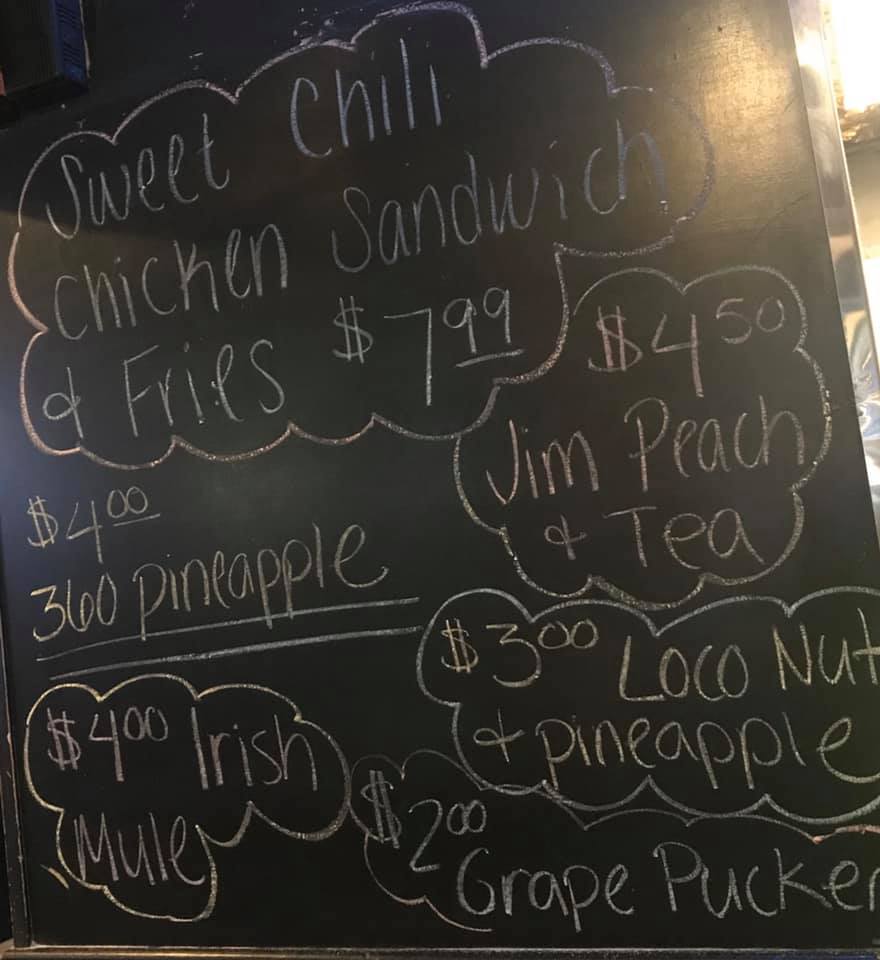 Sweet Chili
Chicken Sandwich
& Fries $7.99
$4.50
Jim Peach
& Tea
$4.00
360 Pineapple
$3.00 Loco Nut
& Pineapple
$4.00 Irish
Mule
$2.00
Grape Pucker